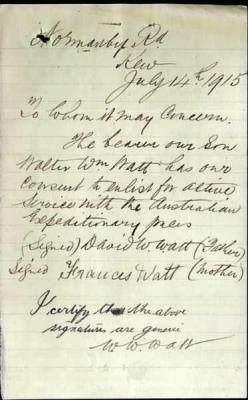 Normanby Rd
Kew
July 14th 1915
To Whom it may Concern.
The bearer our Son
Walter Wm Watt has our
consent to enlist for active
Service with the Australian
Expeditionary
(Signed) David W. Watt (Father)
Signed Frances Watt (Mother)
I certify the above
signatures are
W. W. Watt